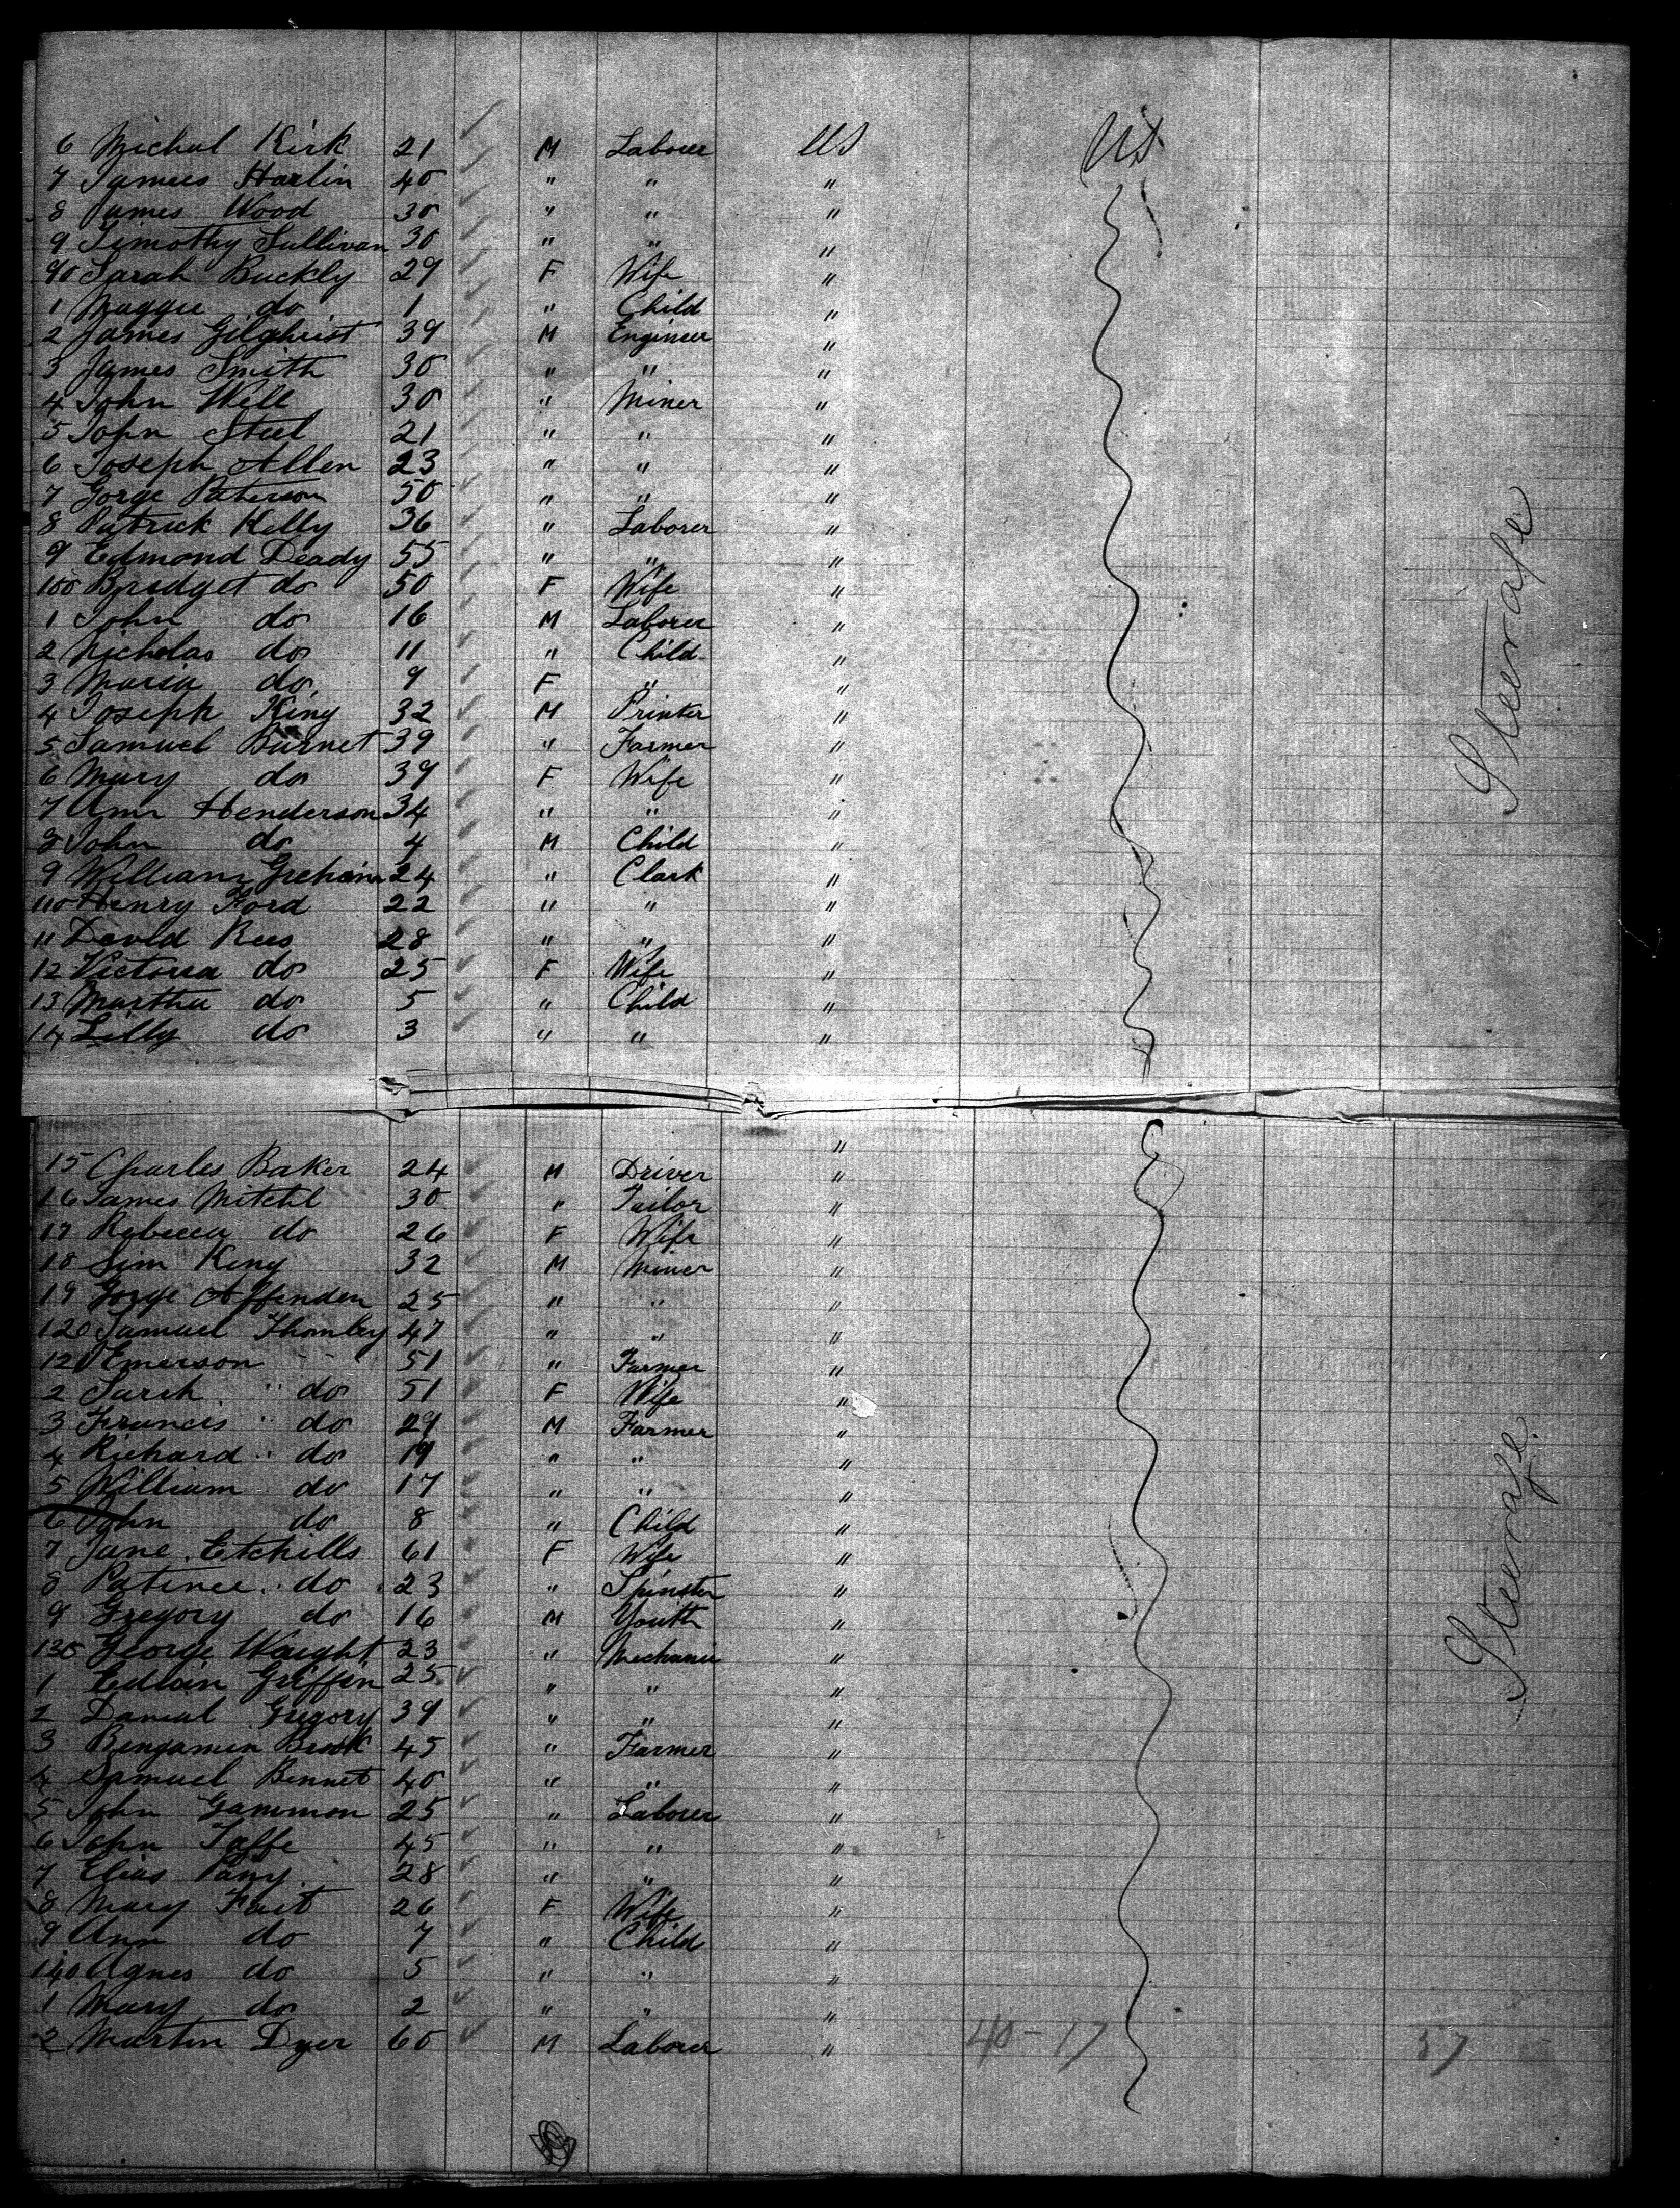 6 Michal Kirk 21 M Laborer US US
7 James Harlin 40 " " "
8 James Wood 30 " " "
9 Timothy Sullivan 30 " " "
90 Sarah Buckly 29 F Wife "
1 Maggie do 1 " Child "
2 James Gilghrist 39 M Engineer "
3 James Smith 30 " " "
4 John Well 30 " Miner "
5 John Steel 21 " " "
6 Joseph Allen 23 " " "
7 Gorge Paterson 50 " " "
8 Patrick Kelly 36 " Laborer "
9 Edmond Deady 55 " " "
100 Bridget do 50 F Wife "
1 John do 16 M Laborer "
2 Nicholas do 11 " Child "
3 Maria do 9 F " "
4 Joseph King 32 M Printer "
5 Samuel Burnet 39 " Farmer "
6 Mary do 39 F Wife "
7 Ann Henderson 34 " " "
8 John do 4 M Child "
9 William Greham 24 " Clark "
110 Henry Ford 22 " " "
11 David Rees 28 " " "
12 Victoria do 25 F Wife "
13 Martha do 5 " Child "
14 Lilly do 3 " " "
Steerage
"
15 Charles Baker 24 M Driver "
16 James Mitchl 30 " Tailor "
17 Rebecca do 26 F Wife "
18 Sim King 32 M Miner "
19 Gorge Affenden 25 " " "
120 Samuel Thornley 47 " " "
121 Emerson 51 " Farmer "
2 Sarah " do 51 F Wife "
3 Francis " do 29 M Farmer "
4 Richard " do 19 " " "
5 William do 17 " " "
6 John do 8 " Child "
7 Jane Etchills 61 F Wife "
8 Patince do 23 " Spinster "
9 Gregory do 16 M Youth "
130 George Waight 23 " Mechanic "
1 Edwin Griffin 25 " " "
2 Danial Gregory 39 " " "
3 Bengamin Brook 45 " Farmer "
4 Samuel Bennet 40 " " "
5 John Gammon 25 " Laborer "
6 John Taffe 45 " " "
7 Elias Parry 28 " " "
8 Mary Fait 26 F Wife "
9 Ann do 7 " Child "
140 Agnes do 5 " " "
1 Mary do 2 " " "
2 Martin Dyer 60 M Laborer " 40-17 57
Steerage.